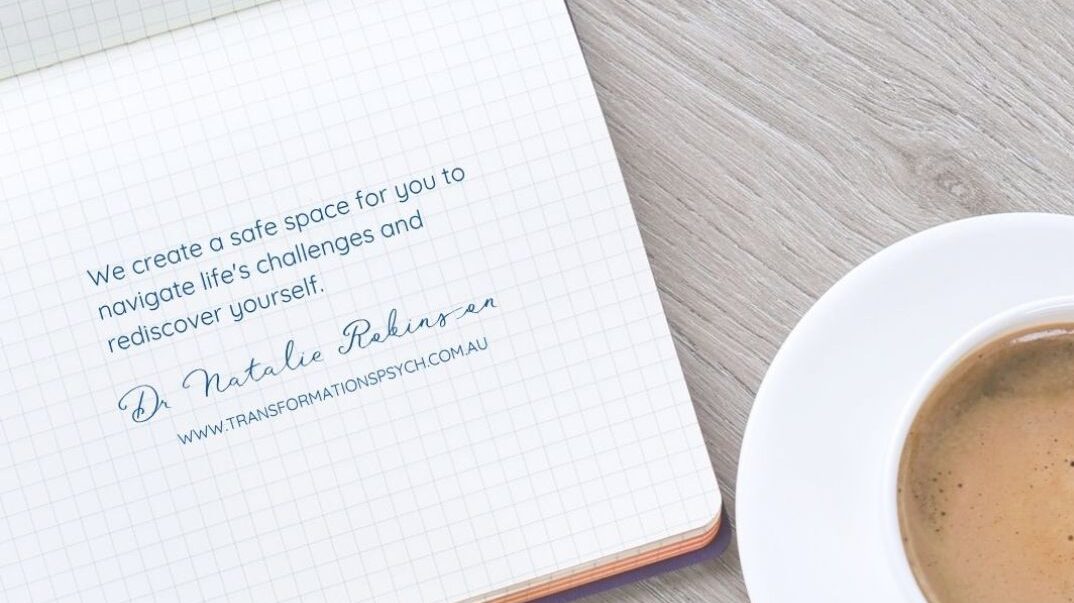 We create a safe space for you to
navigate life's challenges and
rediscover yourself.
Dr Natalie Robinson
WWW.TRANSFORMATIONSPSYCH.COM.AU